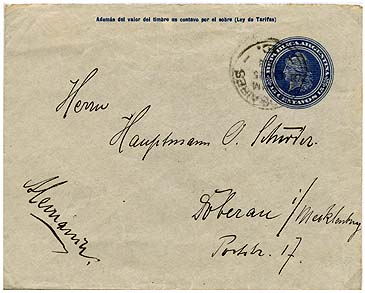 Además del valor del timbre un centavo por el sobre (Ley de Tarifas)
REPUBLICA ARGENTINA
CENTAVOS
AIRES
Herrn
Hauptmann O. Schröder.
Alemania.
Doberau i/Mecklenburg
Poststr. 17.